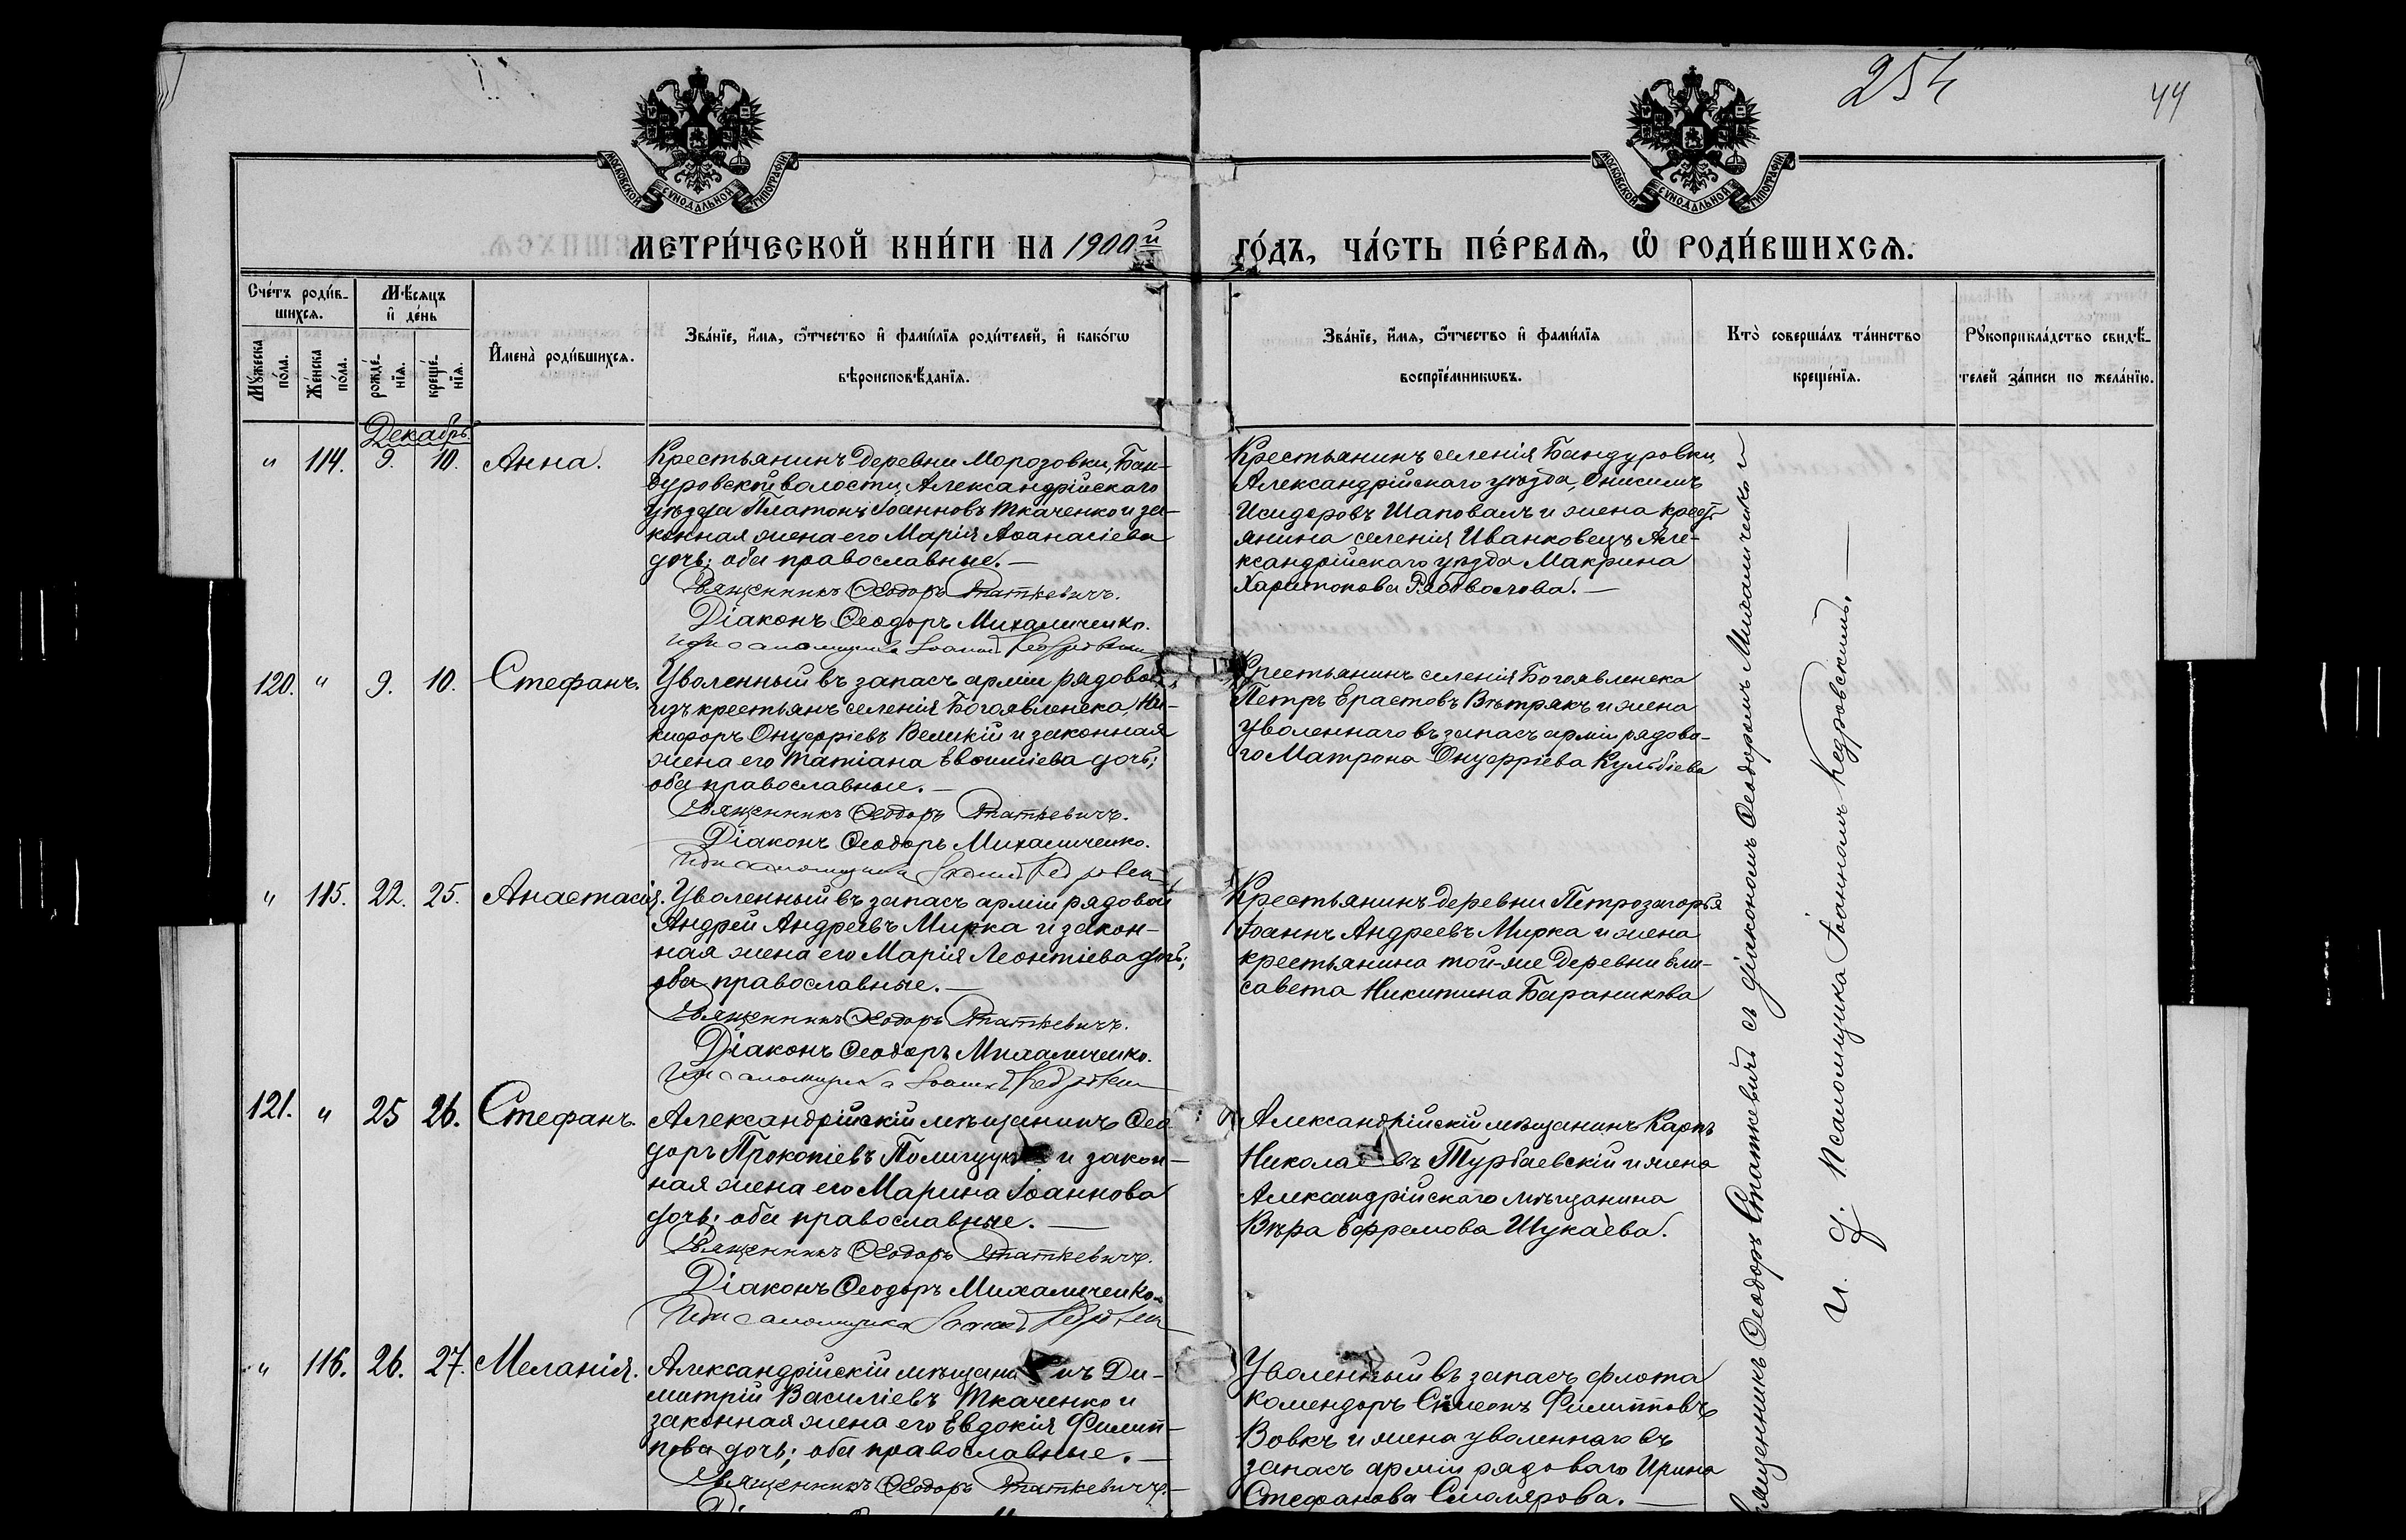 254
44
МОСКОВСКОЙ СѴНОДАЛЬНОЙ ТИПОГРАФІИ
МОСКОВСКОЙ СѴНОДАЛЬНОЙ ТИПОГРАФІИ
МЕТРИ́ЧЕСКОЙ КНИ́ГИ НА 1900й
ГО́ДЪ, ЧА́СТЬ ПЕ́РВАѦ, Ѡ РОДИ́ВШИХСѦ.
Сче́тъ роди́вшихсѧ.
Мѣ́сѧцъ и҆ де́нь
И҆мена̀ роди́вшихсѧ.
Зва́нїе, и҆́мѧ, ѻ҆́тчество и҆ фами́лїѧ роди́телей, и҆ како́гѡ
вѣроисповѣ́данїѧ.
Зва́нїе, и҆́мѧ, ѻ҆́тчество и҆ фами́лїѧ
воспрїе́мникѡвъ.
Кто̀ соверша́лъ та́инство
креще́нїѧ.
Рꙋкоприкла́дство свидѣ́-
телей за́писи по жела́нїю.
Мꙋ́жеска по́ла.
Же́нска по́ла.
рожде́-нїѧ.
креще́-нїѧ.
Декабрь
" 114. 9. 10. Анна.
Крестьянинъ деревни Морозовки, Бан-
дуровской волости, Александрійскаго
уѣзда Платонъ Іоанновъ Ткаченко и за-
конная жена его Марія Аѳанасіева
дочь; оба православные.—
Священникъ Ѳеодоръ Статкевичъ.
Діаконъ Ѳеодоръ Михаличенко.
И д псаломщика Іоаннъ Кедровскій
Крестьянинъ селенія Бандуровки,
Александрійскаго уѣзда, Онисимъ
Исидоровъ Шаповалъ и жена крест-
янина селенія Иванковецъ Але-
ксандрійскаго уѣзда Макрина
Харитонова Рябоволова.—
120. " 9. 10. Стефанъ.
Уволенный въ запасъ арміи рядовой,
изъ крестьянъ селенія Богоявленска, Ни-
кифоръ Онуфріевъ Великій и законная
жена его Татіана Евѳиміева дочь;
оба православные.—
Священникъ Ѳеодоръ Статкевичъ.
Діаконъ Ѳеодоръ Михаличенко.
И д псаломщика Іоаннъ Кедровскій
Крестьянинъ селенія Богоявленска
Петръ Ерастовъ Вѣтрякъ и жена
уволеннаго въ запасъ арміи рядова-
го Матрона Онуфріева Кульбіева
" 115. 22. 25. Анастасія.
Уволенный въ запасъ арміи рядовой
Андрей Андреевъ Мирка и закон-
ная жена его Марія Леонтіева дочь;
оба православные.—
Священникъ Ѳеодоръ Статкевичъ.
Діаконъ Ѳеодоръ Михаличенко.
И д псаломщика Іоаннъ Кедровскій
Крестьянинъ деревни Петрозагорья
Іоаннъ Андреевъ Мирка и жена
крестьянина той-же деревни Ели-
савета Никитина Бараникова
121. " 25 26. Стефанъ.
Александрійскій мѣщанинъ Ѳео-
доръ Прокопіевъ Полищукъ и закон-
ная жена его Марина Іоаннова
дочь; оба православные.—
Священникъ Ѳеодоръ Статкевичъ.
Діаконъ Ѳеодоръ Михаличенко.
И д псаломщика Іоаннъ Кедровскій
Александрійскій мѣщанинъ Карпъ
Николаевъ Турбаевскій и жена
Александрійскаго мѣщанина
Вѣра Ефремова Шукаева.
" 116. 26. 27. Меланія.
Александрійскій мѣщанинъ Ди-
митрій Василіевъ Ткаченко и
законная жена его Евдокія Филип-
пова дочь; оба православные.—
Священникъ Ѳеодоръ Статкевичъ.
Уволенный въ запасъ флота
комендоръ Симеонъ Филипповъ
Вовкъ и жена уволеннаго въ
запасъ арміи рядоваго Ирина
Стефанова Смолярова.—
Священникъ Ѳеодоръ Статкевичъ съ діакономъ Ѳеодоромъ Михаличенко и
и. д. псаломщика Іоанномъ Кедровскимъ.—